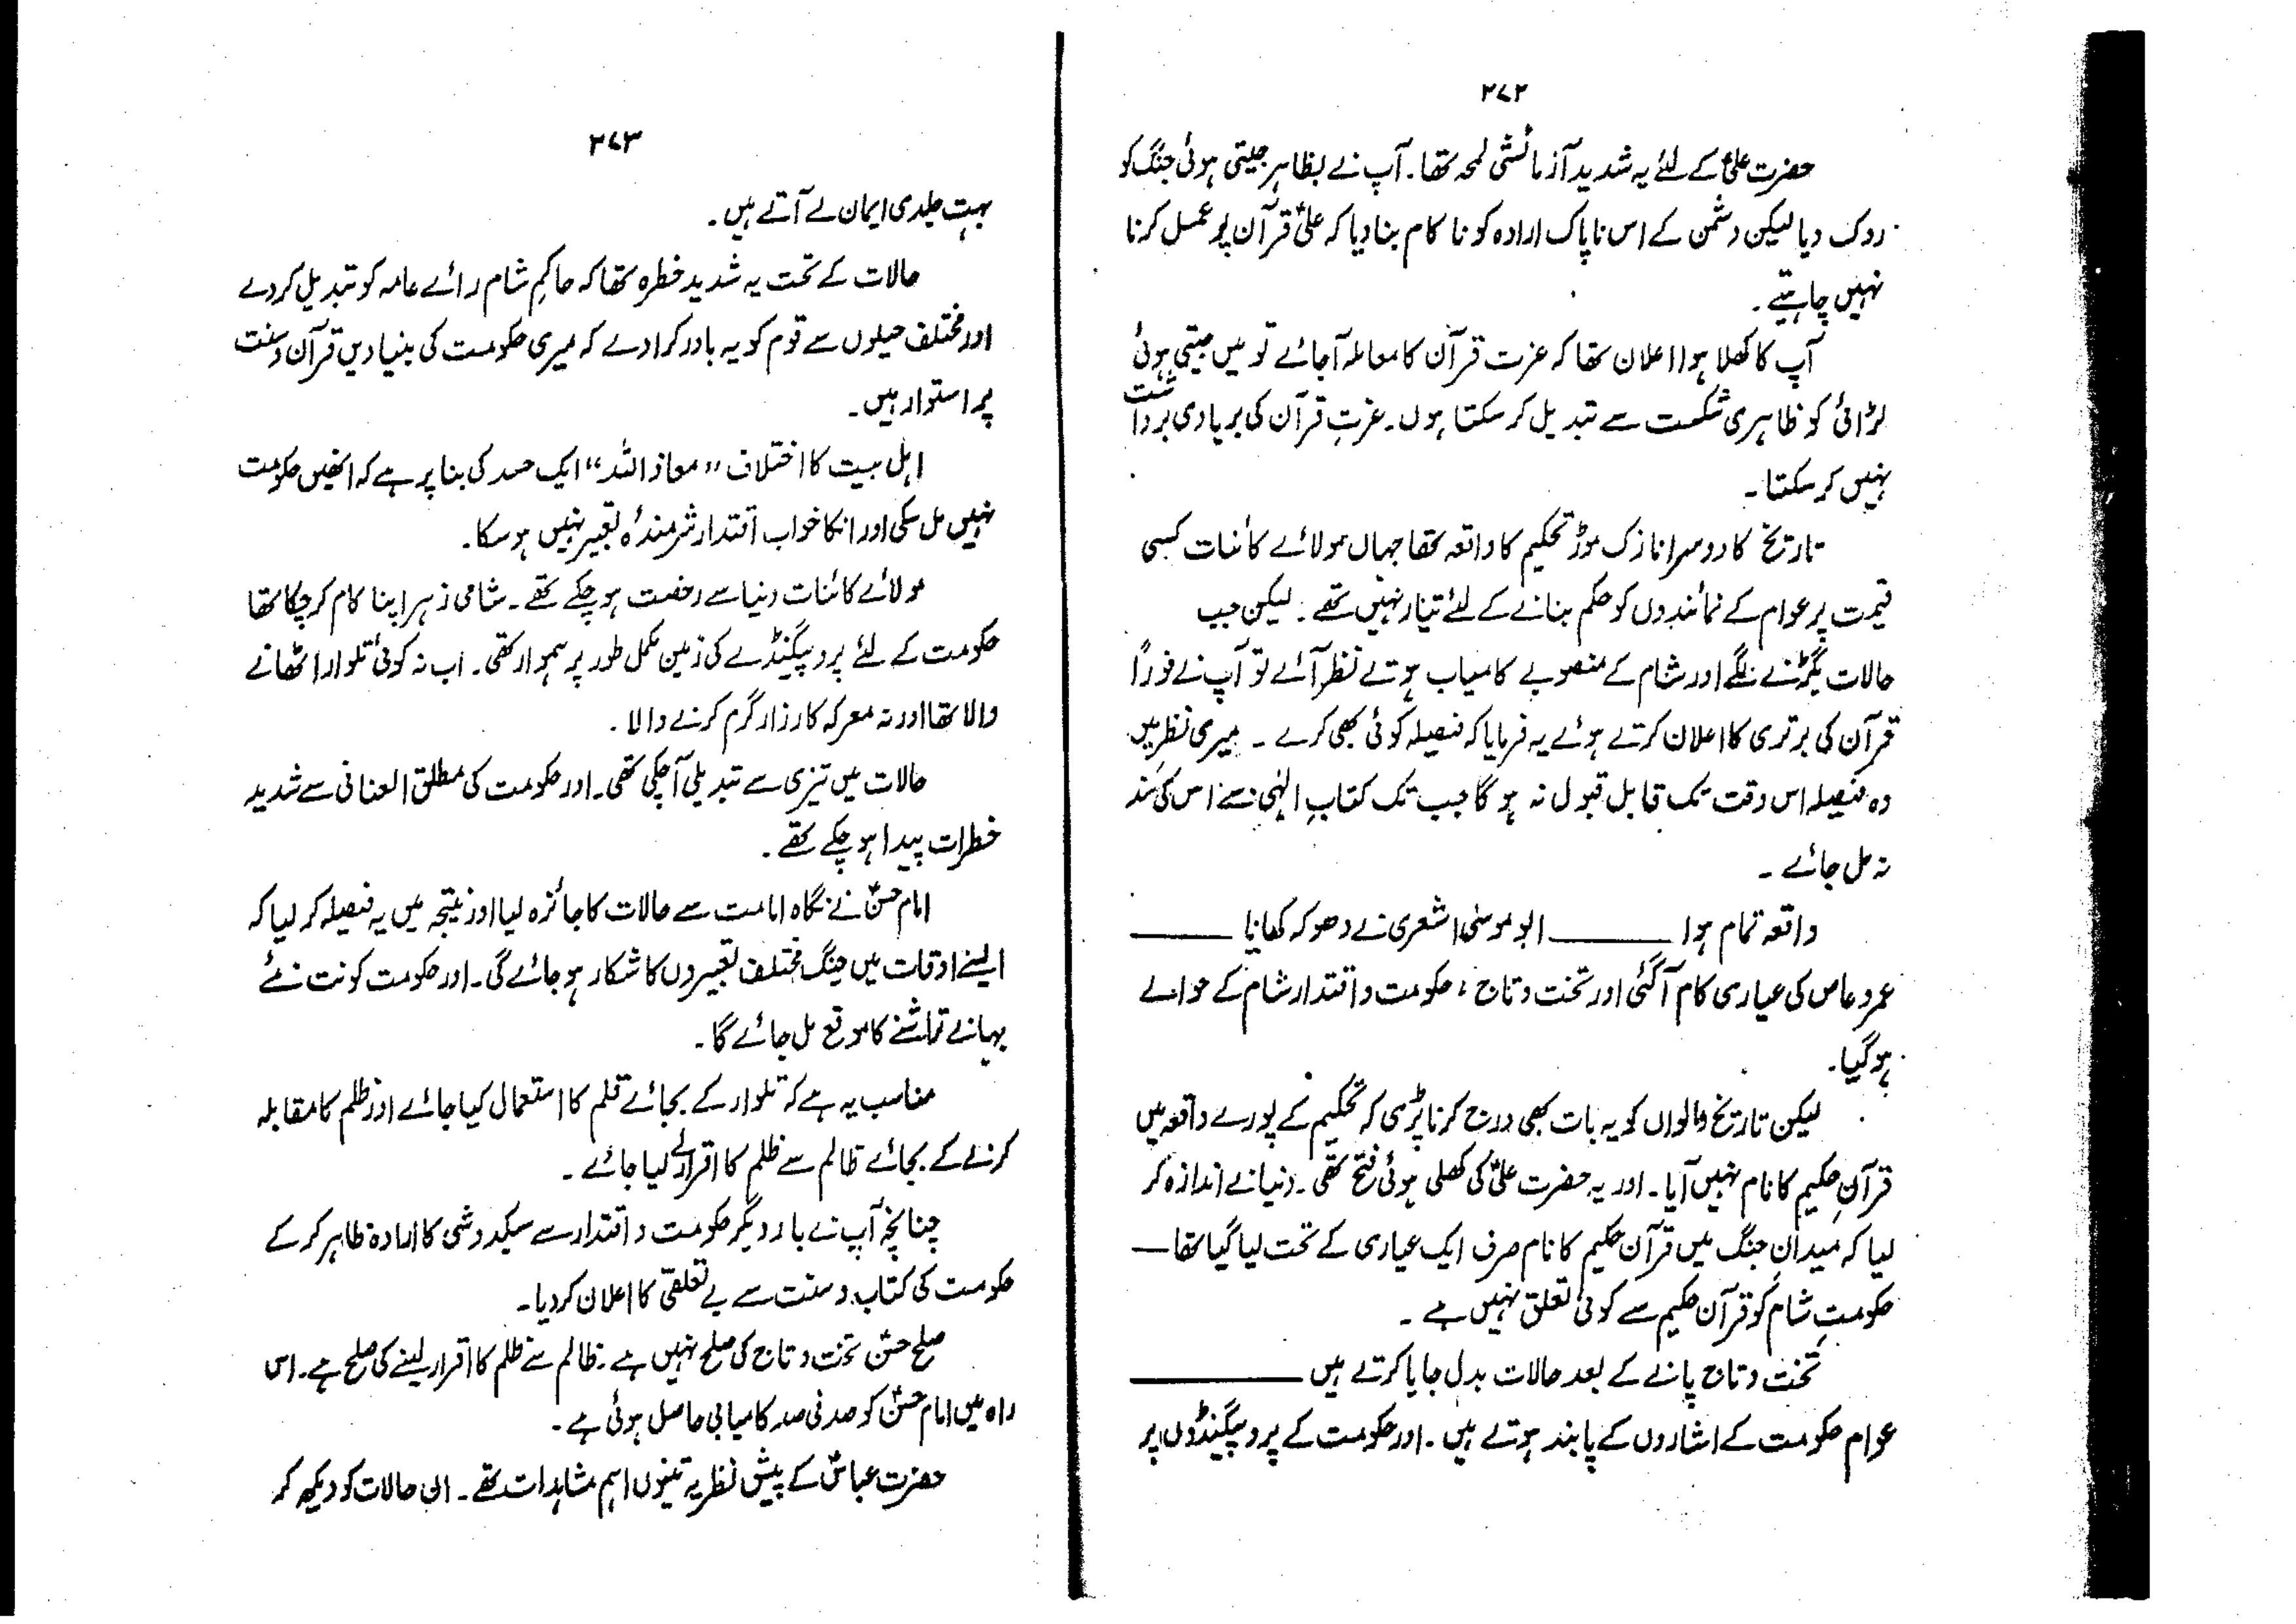 ۲۷۲
حضرت علیؑ کے لئے یہ شدید آزمائشی لمحہ تھا۔ آپ نے بظاہر جیتی ہوئی جنگ کو
روک دیا لیکن دشمن کے اس ناپاک ارادہ کو ناکام بنا دیا کہ علیؑ قرآن پر عمل کرنا
نہیں چاہتے۔
آپ کا کھلا ہوا اعلان تھا کہ عزت قرآن کا معاملہ آجائے تو میں جیتی ہوئی
لڑائی کو ظاہری شکست سے تبدیل کر سکتا ہوں۔ عزتِ قرآن کی بربادی برداشت
نہیں کر سکتا۔
تاریخ کا دوسرا نازک موڑ تحکیم کا واقعہ تھا جہاں مولائے کائنات کسی
قیمت پر عوام کے نمائندوں کو حکم بنانے کے لئے تیار نہیں تھے۔ لیکن جب
حالات بگڑنے لگے اور شام کے منصوبے کامیاب ہوتے نظر آئے تو آپ نے فوراً
قرآن کی برتری کا اعلان کرتے ہوئے یہ فرمایا کہ فیصلہ کوئی بھی کرے ۔ میری نظر میں
وہ فیصلہ اس وقت تک قابل قبول نہ ہوگا جب تک کتابِ الٰہی سے اس کی سند
نہ مل جائے ۔
واقعہ تمام ہوا ـــــــــ ابوموسیٰ اشعری نے دھوکہ کھایا ـــــــــ
عمرو عاص کی عیاری کام آگئی اور تخت و تاج، حکومت و اقتدار شام کے حوالے
ہوگیا۔
لیکن تاریخ والوں کو یہ بات بھی درج کرنا پڑی کہ تحکیم کے پورے واقعہ میں
قرآنِ حکیم کا نام نہیں آیا۔ اور یہ حضرت علیؑ کی کھلی ہوئی فتح تھی۔ دنیا نے اندازہ کر
لیا کہ میدانِ جنگ میں قرآن حکیم کا نام صرف ایک عیاری کے تحت لیا گیا تھا ــــ
حکومتِ شام کو قرآن حکیم سے کوئی تعلق نہیں ہے ۔
تخت و تاج پانے کے بعد حالات بدل جایا کرتے ہیں ـــــــــ
عوام حکومت کے اشاروں کے پابند ہوتے ہیں ۔ اور حکومت کے پروپیگنڈوں پر
۲۷۳
بہت جلدی ایمان لے آتے ہیں۔
حالات کے تحت یہ شدید خطرہ تھا کہ حاکمِ شام رائے عامہ کو تبدیل کر دے
اور مختلف حیلوں سے قوم کو یہ باور کرا دے کہ میری حکومت کی بنیادیں قرآن و سنت
پر استوار ہیں۔
اہل بیت کا اختلاف "معاذ اللہ" ایک حسد کی بنا پر ہے کہ انھیں حکومت
نہیں مل سکی اور انکا خواب اقتدار شرمندۂ تعبیر نہیں ہو سکا۔
مولائے کائنات دنیا سے رخصت ہو چکے تھے۔ شامی زہر اپنا کام کر چکا تھا
حکومت کے لئے پروپیگنڈے کی زمین مکمل طور پر ہموار تھی۔ اب نہ کوئی تلوار اٹھانے
والا تھا اور نہ معرکہ کارزار گرم کرنے والا ۔
حالات میں تیزی سے تبدیلی آچکی تھی۔ اور حکومت کی مطلق العنانی سے شدید
خطرات پیدا ہو چکے تھے ۔
امام حسنؑ نے نگاہ امامت سے حالات کا جائزہ لیا اور نتیجہ میں یہ فیصلہ کر لیا کہ
ایسے اوقات میں جنگ مختلف تعبیروں کا شکار ہو جائے گی۔ اور حکومت کو نت نئے
بہانے تراشنے کا موقع مل جائے گا۔
مناسب یہ ہے کہ تلوار کے بجائے قلم کا استعمال کیا جائے اور ظلم کا مقابلہ
کرنے کے بجائے ظالم سے ظلم کا اقرار لے لیا جائے ۔
چنانچہ آپ نے بار دیگر حکومت و اقتدار سے سبکدوشی کا ارادہ ظاہر کر کے
حکومت کی کتاب و سنت سے بے تعلقی کا اعلان کر دیا۔
صلح حسنؑ تخت و تاج کی صلح نہیں ہے۔ ظالم سے ظلم کا اقرار لینے کی صلح ہے۔ اس
راہ میں امام حسنؑ کو صد فی صد کامیابی حاصل ہوئی ہے۔
حضرت عباسؑ کے پیش نظر یہ تینوں اہم مشاہدات تھے۔ ان حالات کو دیکھ کر